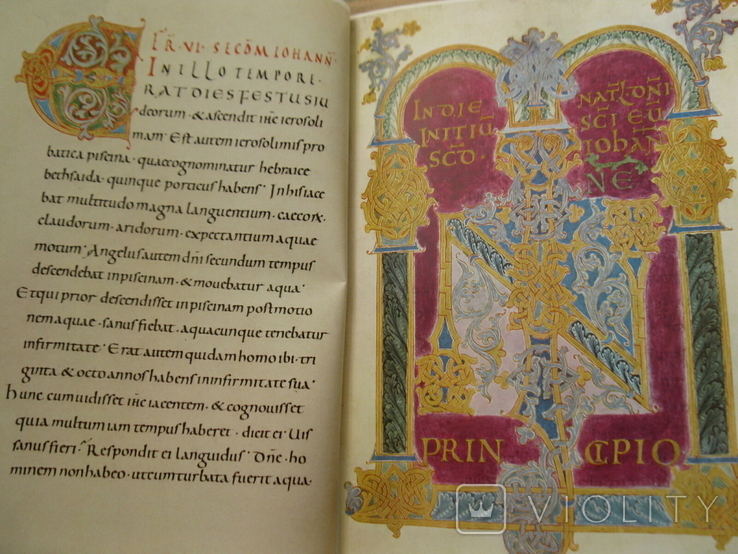 FER̄·VI·SECŌM IOHANN̄
IN ILLO TEMPORE·
ERAT DIES FESTUS IU
deorum· & ascendit ih̄c ierosoli
mam· Est autem ierosolimis pro
batica piscina· quae cognominatur hebraice
bethsaida· quinque porticus habens· In his iace
bat multitudo magna languentium· caecorꝫ·
claudorum· aridorum· expectantium aquae
motum· Angelus autem dn̄i secundum tempus
descendebat in piscinam· & movebatur aqua·
Et qui prior descendisset in piscinam post motio
nem aquae· sanus fiebat· a quacunque tenebatur
infirmitate· Erat autem quidam homo ibi· tri
ginta & octo annos habens in infirmitate sua·
Hunc cum vidisset ih̄c iacentem· & cognovisset
quia multum iam tempus haberet· dicit ei· Uis
sanus fieri· Respondit ei languidus· Dn̄e· ho
minem non habeo· ut cum turbata fuerit aqua·
IN DIE
INITIŪ
SC̄D·
NAT̄L DN̄I
SC̄I EU̅
IOHAN
NE·
IN
PRIN CIPIO
VIOLITY